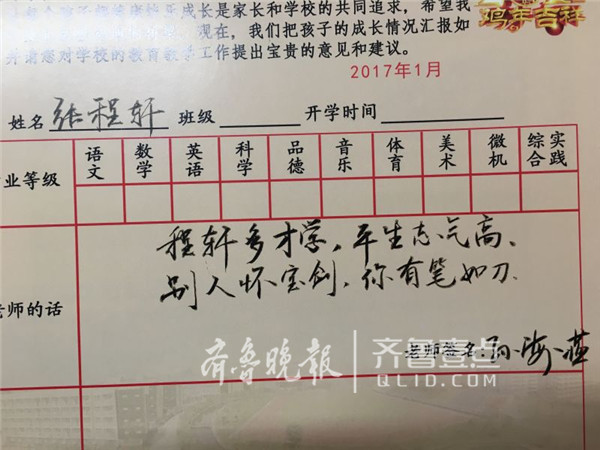 鸡年吉祥
成长是家长和学校的共同追求，希望我
现在，我们把孩子的成长情况汇报如
对学校的教育教学工作提出宝贵的意见和建议。
2017年1月
姓名 张程轩 班级 开学时间
语文 数学 英语 科学 品德 音乐 体育 美术 微机 综合实践
业等级
程轩多才学，平生志气高、
别人怀宝剑，你有笔如刀.
老师的话
老师签名：孙海燕
齐鲁晚报 齐鲁壹点
QLID.COM